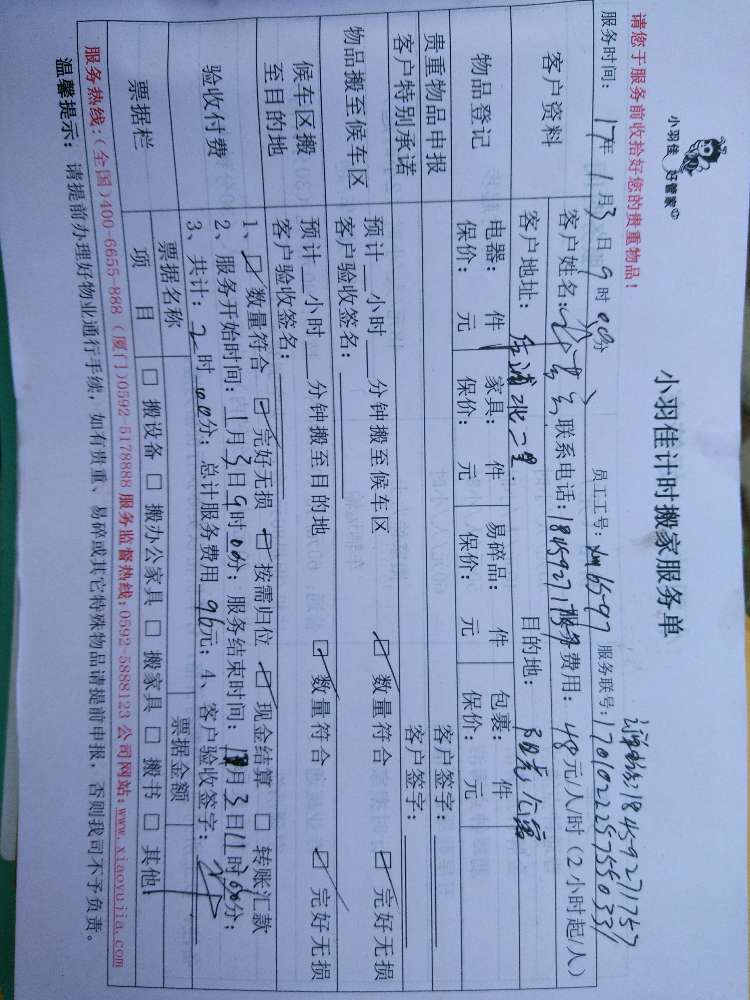 小羽佳 好管家
小羽佳计时搬家服务单
请您于服务前收拾好您的贵重物品!
订单电话:18459271757
服务时间: 17年 1月3日9时00分 员工工号: 6597 服务联号:170102225755033
客户资料
客户姓名: 联系电话:18459271757 服务费用: 48元/人/时(2小时起/人)
客户地址: 北二里 目的地: 阳光公寓
物品登记
电器: 件 家具: 件 易碎品: 件 包裹: 件
保价: 元 保价: 元 保价: 元 保价: 元
贵重物品申报 客户签字:
客户特别承诺 客户签字:
物品搬至候车区
预计__小时__分钟搬至候车区 ☑ 数量符合 ☑ 完好无损
客户验收签名:
候车区搬至目的地
预计__小时__分钟搬至目的地 ☑ 数量符合 ☑ 完好无损
客户验收签名:
验收付费
1、☑ 数量符合 ☑ 完好无损 ☑ 按需归位 ☑ 现金结算 □ 转账汇款
2、服务开始时间: 1月3日9时00分; 服务结束时间: 1月3日11时00分;
3、共计: 2时00分; 总计服务费用 96元; 4、客户验收签字:
票据栏
票据名称 票据金额
项 目 □ 搬设备 □ 搬办公家具 □ 搬家具 □ 搬书 □ 其他:
服务热线:(全国)400-6655-888 (厦门)0592-5178888 服务监督热线:0592-5888123 公司网站:www.xiaoyujia.com
温馨提示: 请提前办理好物业通行手续,如有贵重、易碎或其它特殊物品请提前申报,否则我司不予负责。